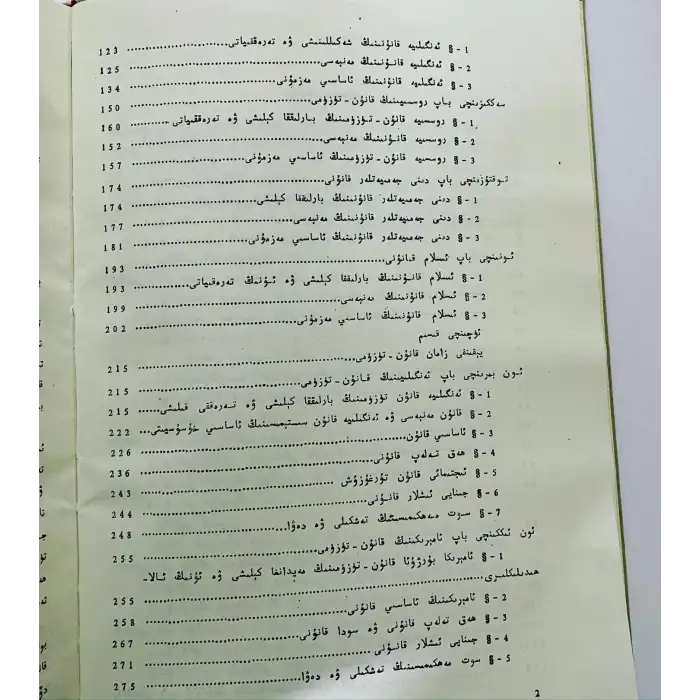 1 - § ئەنگلىيە قانۇنىنىڭ شەكىللىنىشى ۋە تەرەققىياتى 123
2 - § ئەنگلىيە قانۇنىنىڭ مەنبەسى 125
3 - § ئەنگلىيە قانۇنىنىڭ ئاساسىي مەزمۇنى 134
سەككىزىنچى باپ روسسىيىنىڭ قانۇن - تۈزۈمى 150
1 - § روسسىيە قانۇن - تۈزۈمىنىڭ بارلىققا كېلىشى ۋە تەرەققىياتى 160
2 - § روسسىيە قانۇنىنىڭ مەنبەسى 152
3 - § روسسىيە قانۇن - تۈزۈمىنىڭ ئاساسىي مەزمۇنى 157
توققۇزىنچى باپ دىنى جەمىيەتلەر قانۇنى 174
1 - § دىنى جەمىيەتلەر قانۇنىنىڭ بارلىققا كېلىشى 174
2 - § دىنى جەمىيەتلەر قانۇنىنىڭ مەنبەسى 177
3 - § دىنى جەمىيەتلەر قانۇنىنىڭ ئاساسىي مەزمۇنى 181
ئونىنچى باپ ئىسلام قانۇنى 193
1 - § ئىسلام قانۇنىنىڭ بارلىققا كېلىشى ۋە ئۇنىڭ تەرەققىياتى 193
2 - § ئىسلام قانۇنىنىڭ مەنبەسى 199
3 - § ئىسلام قانۇنىنىڭ ئاساسىي مەزمۇنى 202
ئۈچىنچى قىسىم
يېقىنقى زامان قانۇن - تۈزۈمى 215
ئون بىرىنچى باپ ئەنگلىيىنىڭ قانۇن - تۈزۈمى 215
1 - § ئەنگلىيە قانۇن تۈزۈمىنىڭ بارلىققا كېلىشى ۋە تەرەققى قىلىشى 215
2 - § قانۇن مەنبەسى ۋە ئەنگلىيە قانۇن سىستېمىسىنىڭ ئاساسىي خۇسۇسىيىتى 222
3 - § ئاساسىي قانۇن 226
4 - § ھەق تەلەپ قانۇنى 236
5 - § ئىجتىمائى قانۇن تۇرغۇزۇش 243
6 - § جىنايى ئىشلار قانۇنى 244
7 - § سوت مەھكىمىسىنىڭ تەشكىلى ۋە دەۋا 248
ئون ئىككىنچى باپ ئامېرىكىنىڭ قانۇن - تۈزۈمى 255
1 - § ئامېرىكا بۇرژۇئا قانۇن - تۈزۈمىنىڭ مەيدانغا كېلىشى ۋە ئۇنىڭ ئالا-
ھىدىلىكلىرى 255
2 - § ئامېرىكىنىڭ ئاساسىي قانۇنى 258
3 - § ھەق تەلەپ قانۇنى ۋە سودا قانۇنى 267
4 - § جىنايى ئىشلار قانۇنى 271
5 - § سوت مەھكىمىسىنىڭ تەشكىلى ۋە دەۋا 275
2